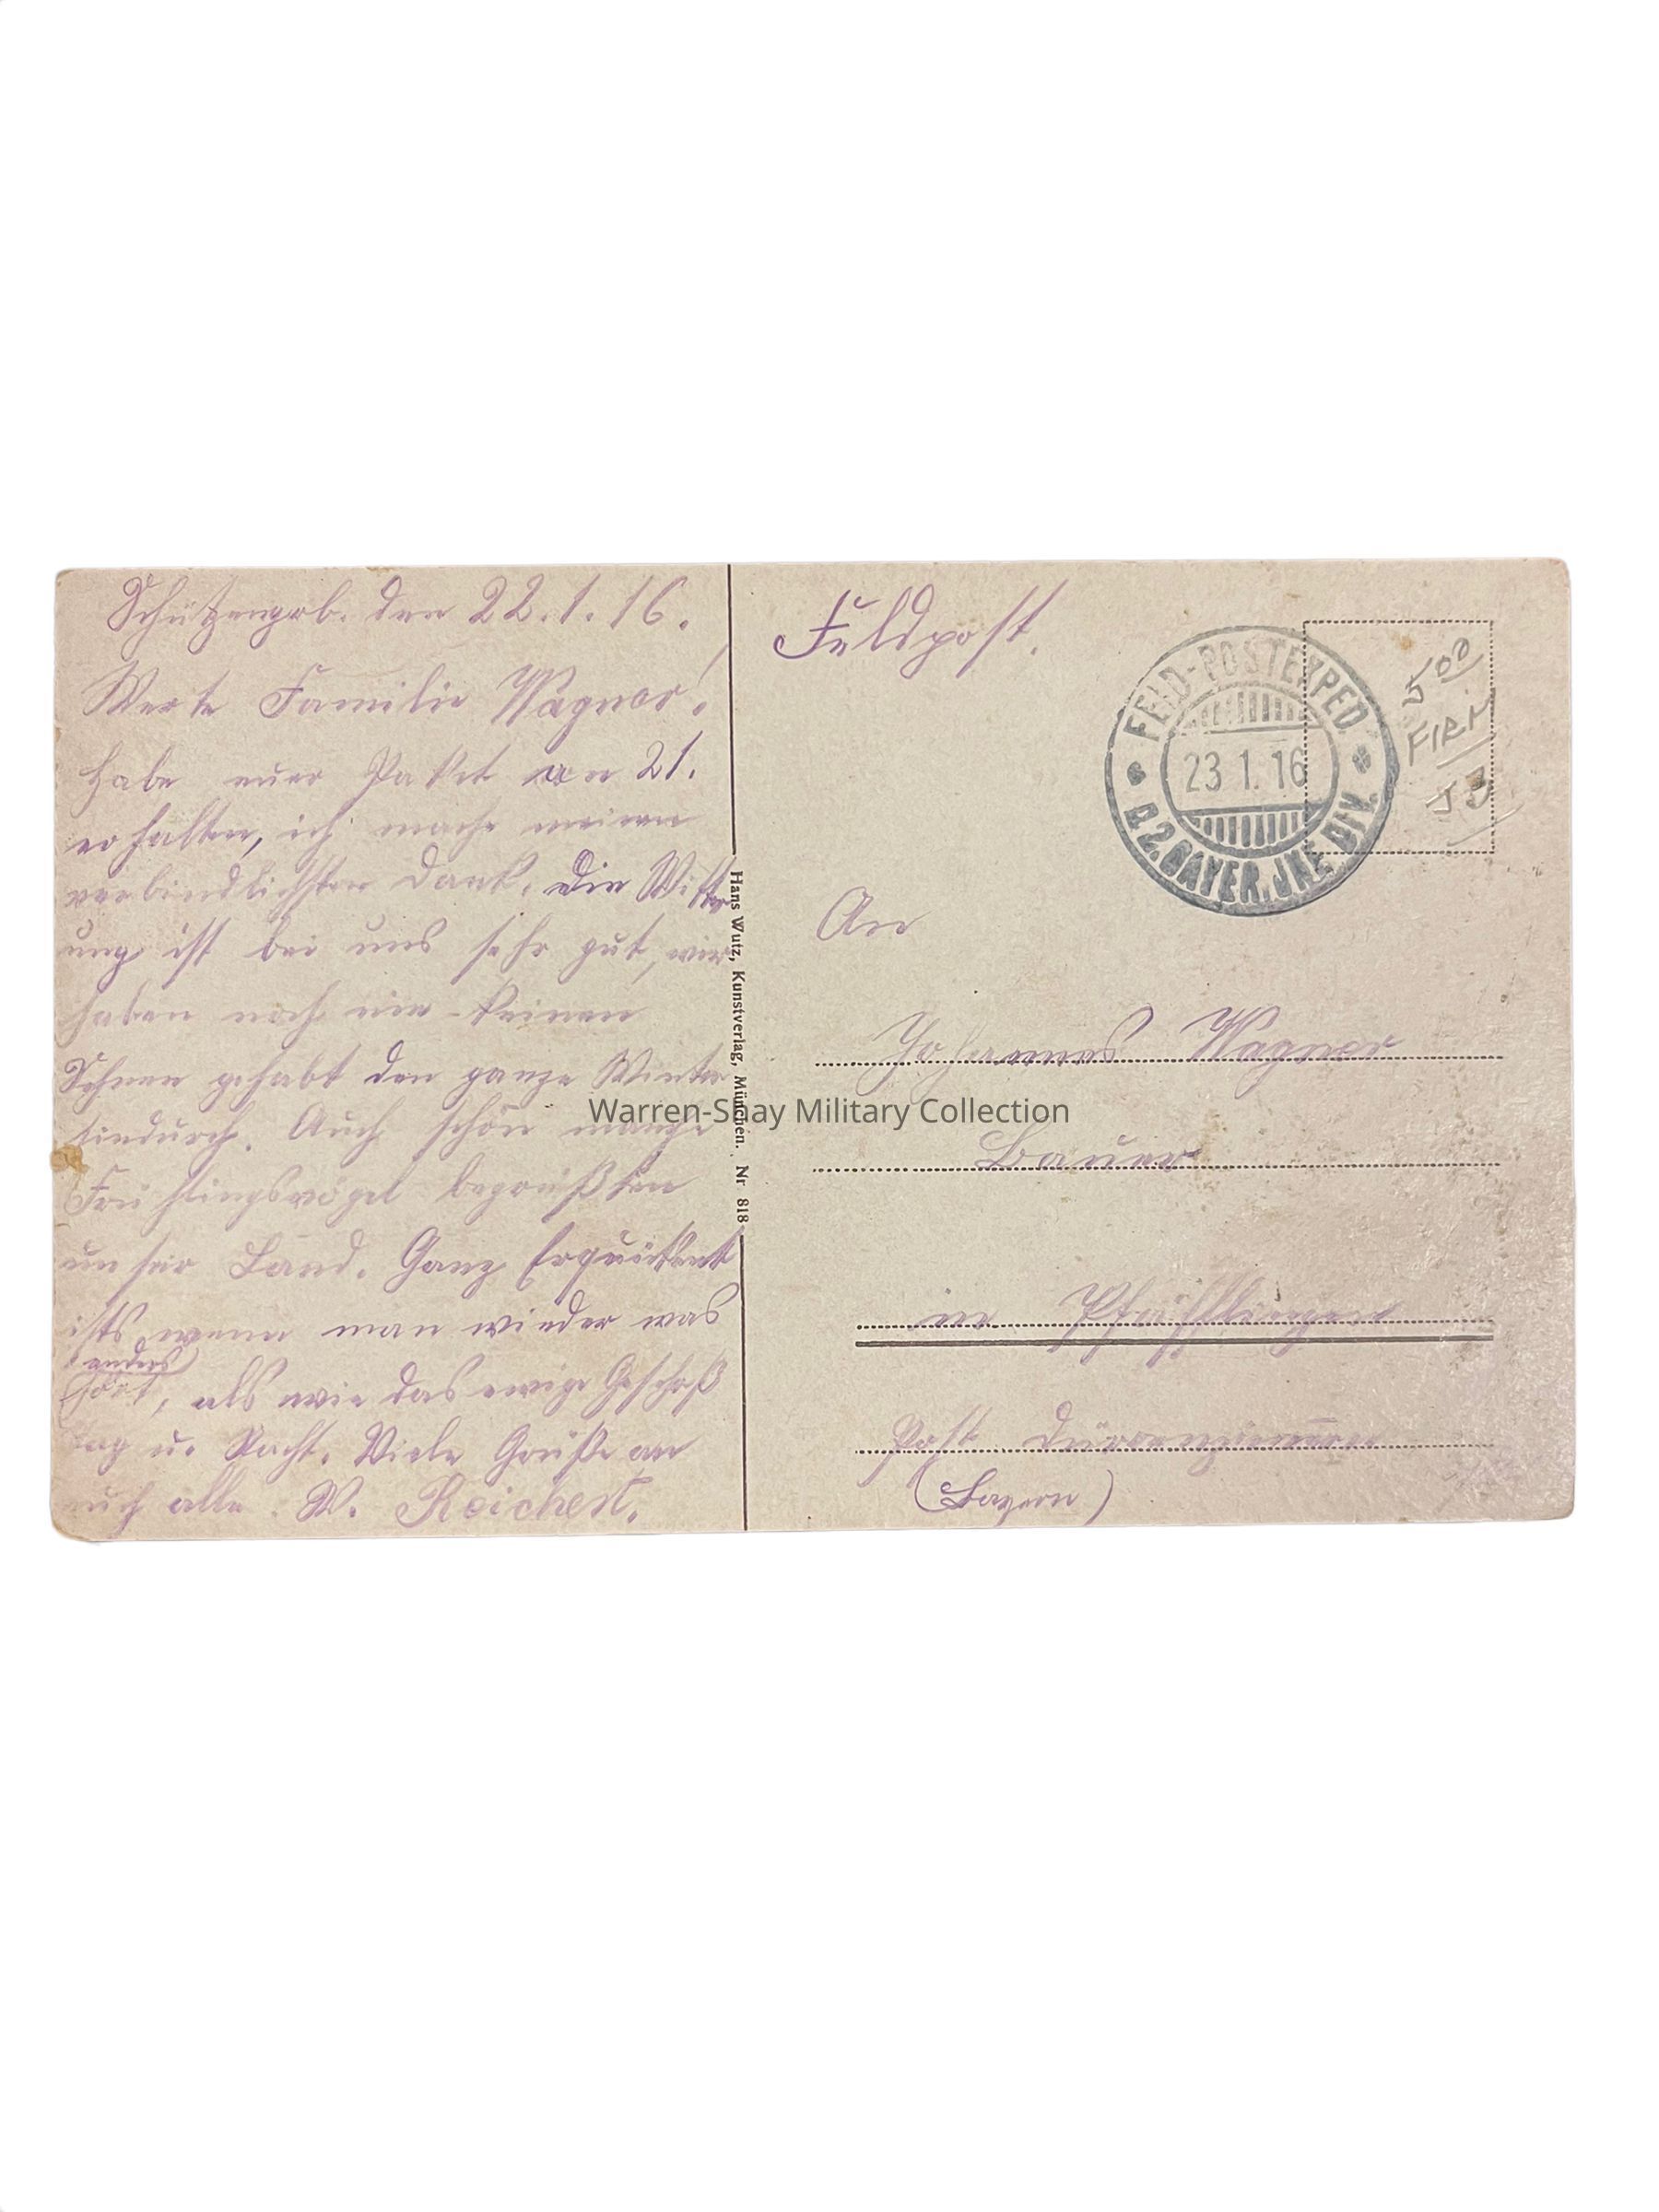 Schützengrb. den 22.1.16.
Werte Familie Wagner!
Habe euer Paket am 21.
erhalten, ich mache meinen
verbindlichsten Dank. Die Witter
ung ist bei uns sehr gut, wir
haben noch nie keinen
Schnee gehabt den ganze Winter
hindurch. Auch schön manche
Frühlingsvögel begrüßten
unser Land. Ganz Erquickent
ists wenn man wieder was
anders
hört, als wie das ewige Geschoß
Tag u. Nacht. Viele Grüße an
euch alle. W. Reichert.
Hans Wutz, Kunstverlag, München. Nr 818
Feldpost.
FELD-POSTEXPED.
23 1. 16
D. 2. BAYER. JNF. DIV.
500
FIRM
JB
An
Johannes Wagner
Warren-Shay Military Collection
Bauer
in Pfäfflingen
Post Dürrenzimmern
(Bayern)